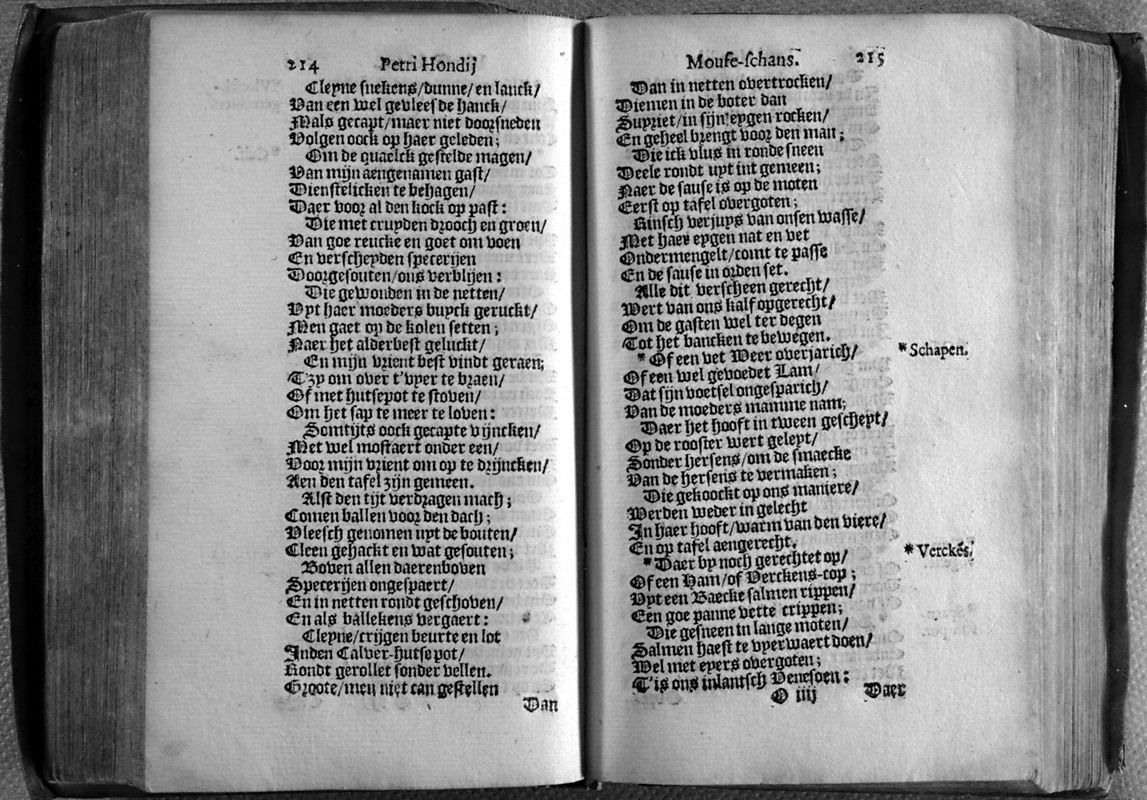 214 Petri Hondij
Cleyne snekens/dunne/en lanck/
Van een wel gevleesde hanck/
Mals gecapt/maer niet doorsneden
Volgen oock op haer geleden;
Om de quaelck gestelde magen/
Van mijn aengenamen gast/
Dienstelicken te behagen/
Daer voor al den kock op past:
Die met cruyden drooch en groen/
Van goe reucke en goet om voen
En verscheyden specerijen
Doorgesouten/ons verblijen:
Die gewonden in de netten/
Uyt haer moeders buyck geruckt/
Men gaet op de kolen setten;
Naer het alderbest geluckt/
En mijn vrient best vindt geraen;
T'zy om over t'vyer te braen/
Of met hutsepot te stoven/
Om het sap te meer te loven:
Somtijts oock gecapte vijncken/
Met wel mostaert onder een/
Voor mijn vrient om op te drijncken/
Aen den tafel zijn gemeen.
Alst den tijt verdragen mach;
Comen ballen voor den dach;
Vleesch genomen uyt de bouten/
Cleen gehackt en wat gesouten;
Boven allen daerenboven
Specerijen ongespaert/
En in netten rondt geschoven/
En als ballekens vergaert:
Cleyne/crijgen beurte en lot
Inden Calver-hutsepot/
Rondt gerollet sonder vellen.
Groote/men niet can gestellen
Dan
Mouse-schans. 215
Dan in netten overtrocken/
Diemen in de boter dan
Supriet/in sijn eygen rocken/
En geheel brengt voor den man;
Die ick vlus in ronde sneen
Deele rondt uyt int gemeen;
Naer de sause is op de moten
Eerst op tafel overgoten;
Rinsch verjuys van onsen wasse/
Met haer eygen nat en vet
Ondermengelt/comt te passe
En de sause in orden set.
Alle dit verscheen gerecht/
Wert van ons kalf opgerecht/
Om de gasten wel ter degen
Tot het bancken te bewegen.
* Of een vet Weer overjarich/ * Schapen.
Of een wel gevoedet Lam/
Dat sijn voetsel ongesparich/
Van de moeders mamme nam;
Daer het hooft in tween geschept/
Op de rooster wert gelept/
Sonder hersens/om de smaecke
Van de hersens te vermaken;
Die gekoockt op ons maniere/
Werden weder in gelecht
In haer hooft/warm van den viere/
En op tafel aengerecht.
* Daer by noch gerechtet op/ * Verckēs.
Of een Ham/of Verckens-cop;
Uyt een Baecke salmen rippen/
Een goe panne vette crippen;
Die gesneen in lange moten/
Salmen haest te vyerwaert doen/
Wel met eyers overgoten;
T'is ons inlantsch Venesoen:
O iiij Daer